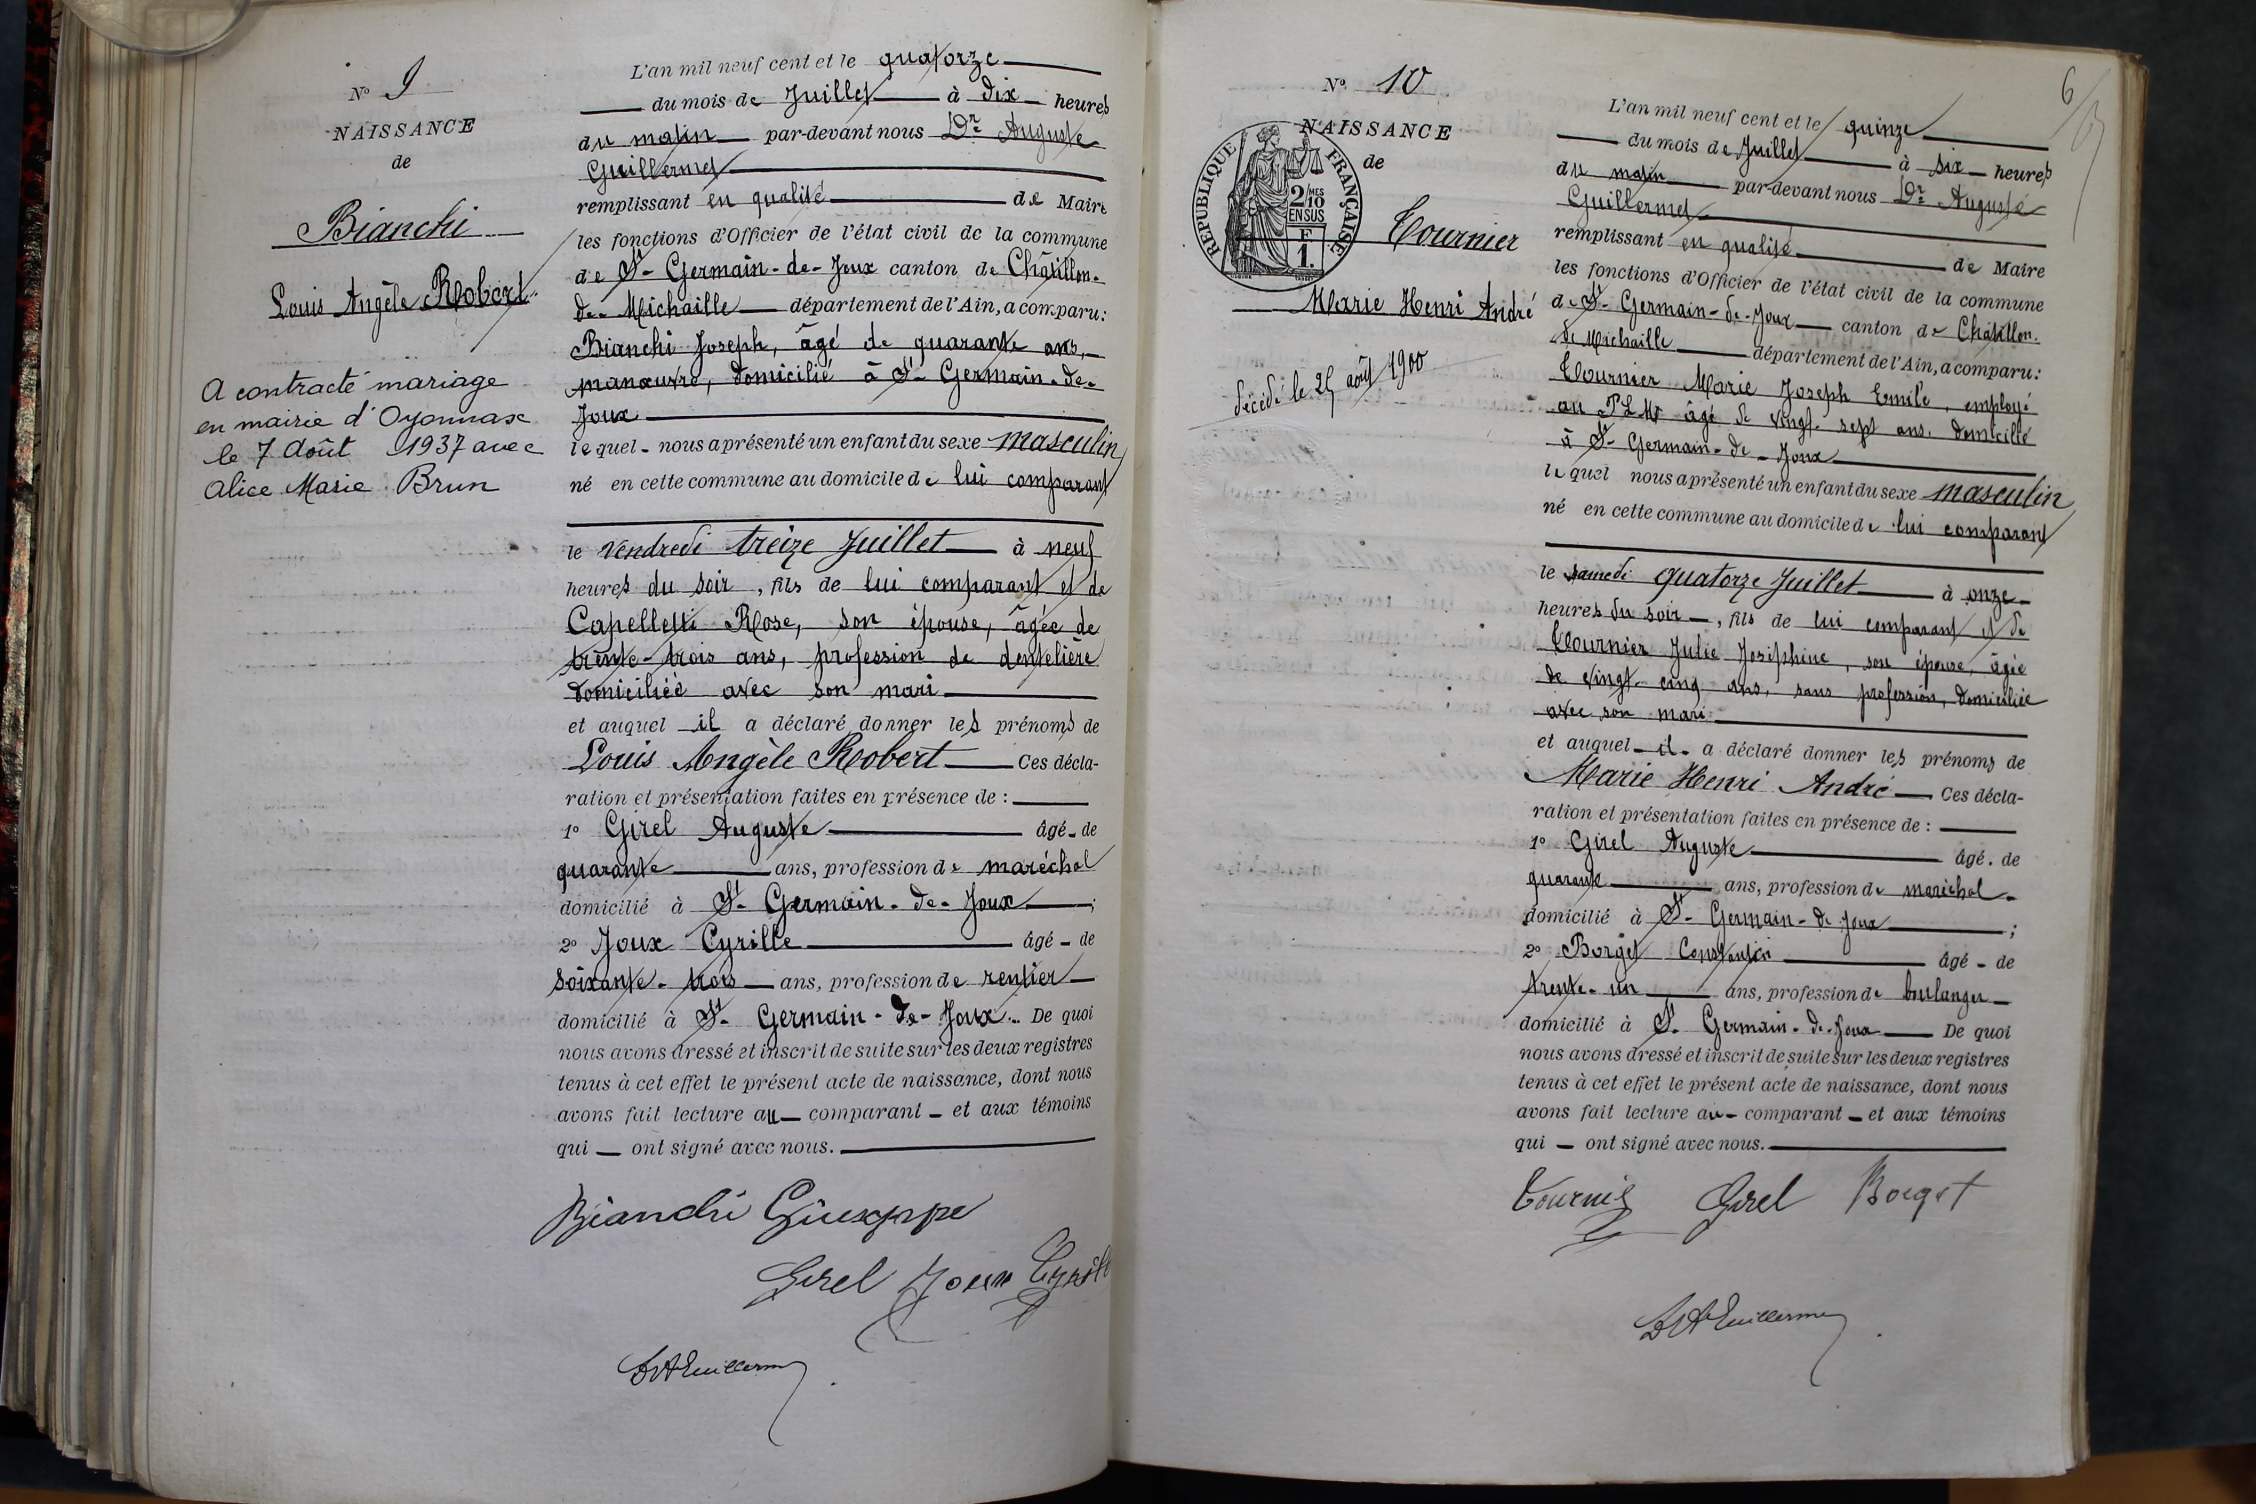 N° 9
NAISSANCE
de
Bianchi
Louis Angèle Robert
A contracté mariage
en mairie d'Oyonnax
le 7 Août 1937 avec
Alice Marie Brun
L'an mil neuf cent et le quatorze
du mois de Juillet à dix heures
du matin par-devant nous Dr Auguste
Guillermet
remplissant en qualité de Maire
les fonctions d'Officier de l'état civil de la commune
de St-Germain-de-Joux canton de Châtillon-
de-Michaille département de l'Ain, a comparu:
Bianchi Joseph, âgé de quarante ans,
manœuvre, domicilié à St-Germain-de-
Joux
lequel nous a présenté un enfant du sexe masculin
né en cette commune au domicile de lui comparant
le vendredi treize Juillet à neuf
heures du soir, fils de lui comparant et de
Capelletti Rose, son épouse, âgée de
trente-trois ans, profession de dentelière
domiciliée avec son mari
et auquel il a déclaré donner les prénoms de
Louis Angèle Robert Ces décla-
ration et présentation faites en présence de :
1° Girel Auguste âgé de
quarante ans, profession de maréchal
domicilié à St-Germain-de-Joux ;
2° Joux Cyrille âgé de
soixante-trois ans, profession de rentier
domicilié à St-Germain-de-Joux. De quoi
nous avons dressé et inscrit de suite sur les deux registres
tenus à cet effet le présent acte de naissance, dont nous
avons fait lecture au comparant et aux témoins
qui ont signé avec nous.
Bianchi Giuseppe
Girel Joux Cyrille
Dr A Guillermet
6
N° 10
NAISSANCE
de
RÉPUBLIQUE FRANÇAISE
2/10 MES
EN SUS
F
1.
Tournier
Marie Henri André
décédé le 25 août 1900
L'an mil neuf cent et le quinze
du mois de Juillet à six heures
du matin par-devant nous Dr Auguste
Guillermet
remplissant en qualité de Maire
les fonctions d'Officier de l'état civil de la commune
de St-Germain-de-Joux canton de Châtillon-
de Michaille département de l'Ain, a comparu:
Tournier Marie Joseph Emile, employé
au P L M âgé de vingt-sept ans, domicilié
à St-Germain-de-Joux
lequel nous a présenté un enfant du sexe masculin
né en cette commune au domicile de lui comparant
le samedi quatorze Juillet à onze
heures du soir, fils de lui comparant et de
Tournier Julie Joséphine, son épouse, âgée
de vingt-cinq ans, sans profession, domiciliée
avec son mari
et auquel il a déclaré donner les prénoms de
Marie Henri André Ces décla-
ration et présentation faites en présence de :
1° Girel Auguste âgé de
quarante ans, profession de maréchal
domicilié à St-Germain-de-Joux ;
2° Borget Constantin âgé de
trente-un ans, profession de boulanger
domicilié à St-Germain-de-Joux De quoi
nous avons dressé et inscrit de suite sur les deux registres
tenus à cet effet le présent acte de naissance, dont nous
avons fait lecture au comparant et aux témoins
qui ont signé avec nous.
Tournier Girel Borget
Dr A Guillermet